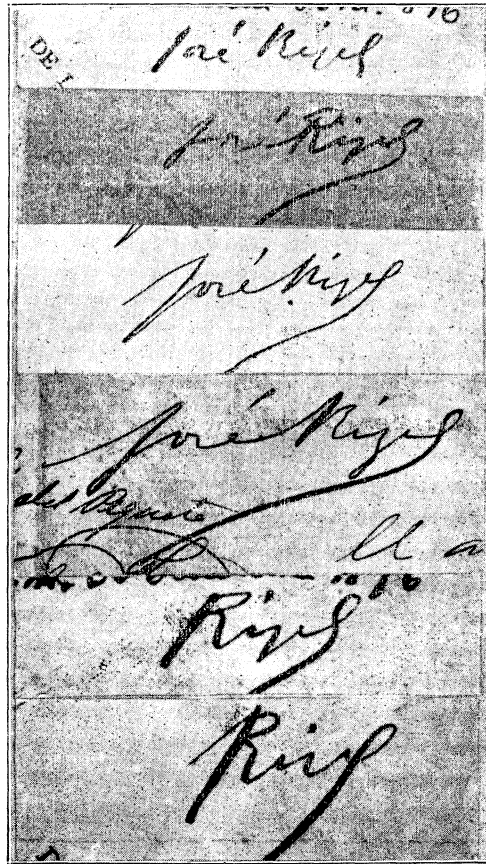 DE L
José Rizal
José Rizal
José Rizal
José Rizal
Rizal
Rizal